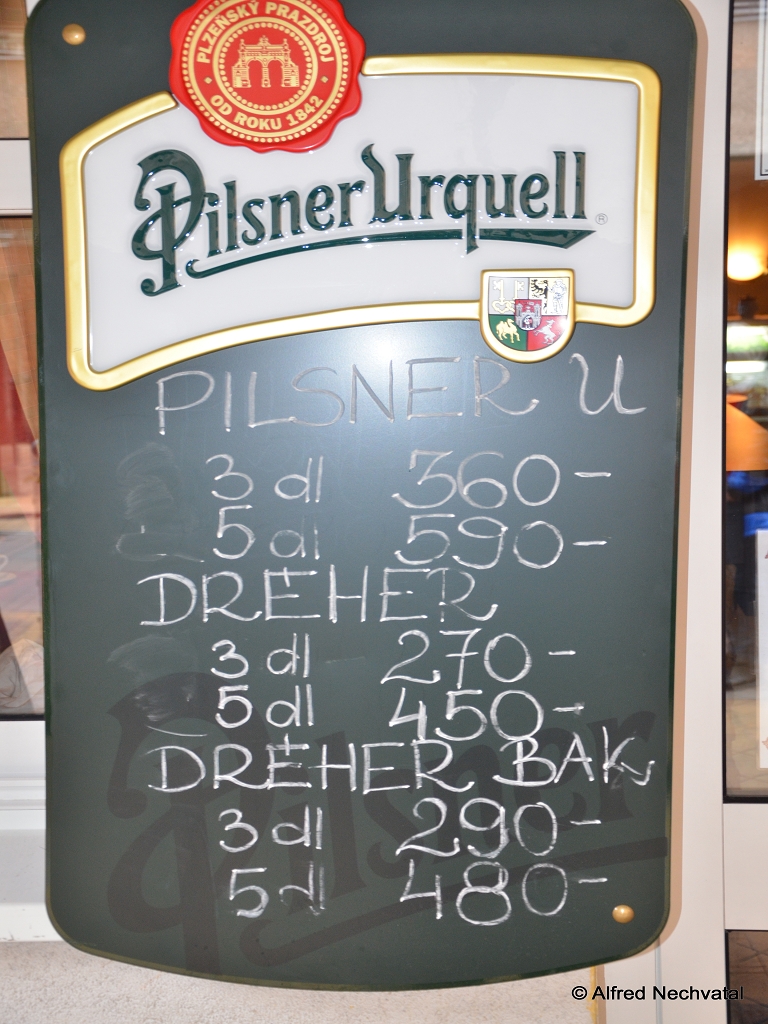 PLZEŇSKÝ PRAZDROJ
OD ROKU 1842
Pilsner Urquell ®
PILSNER U
3 dl 360-
5 dl 590-
DREHER
3 dl 270-
5 dl 450-
DREHER BAK
3 dl 290-
5 dl 480-
Pilsner
© Alfred Nechvatal